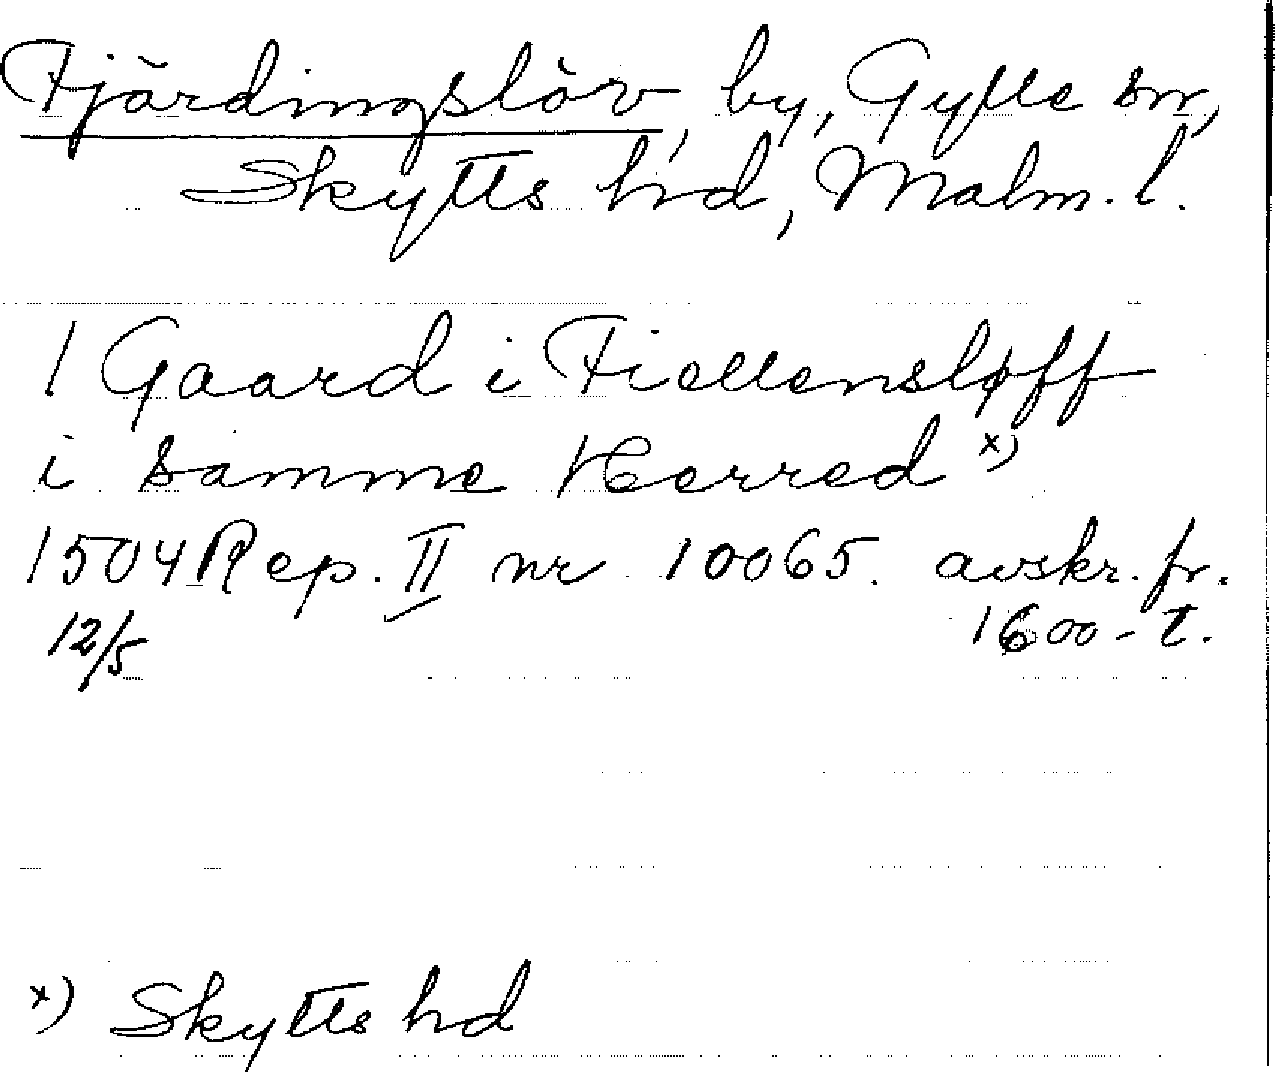 Fjärdingslöv, by, Gylle sn,
Skytts hd, Malm. l.
1 Gaard i Fiellensløff
i samme Herred x)
1504 Rep. II nr 10065. avskr. fr.
12/5 1600-t.
x) Skytts hd